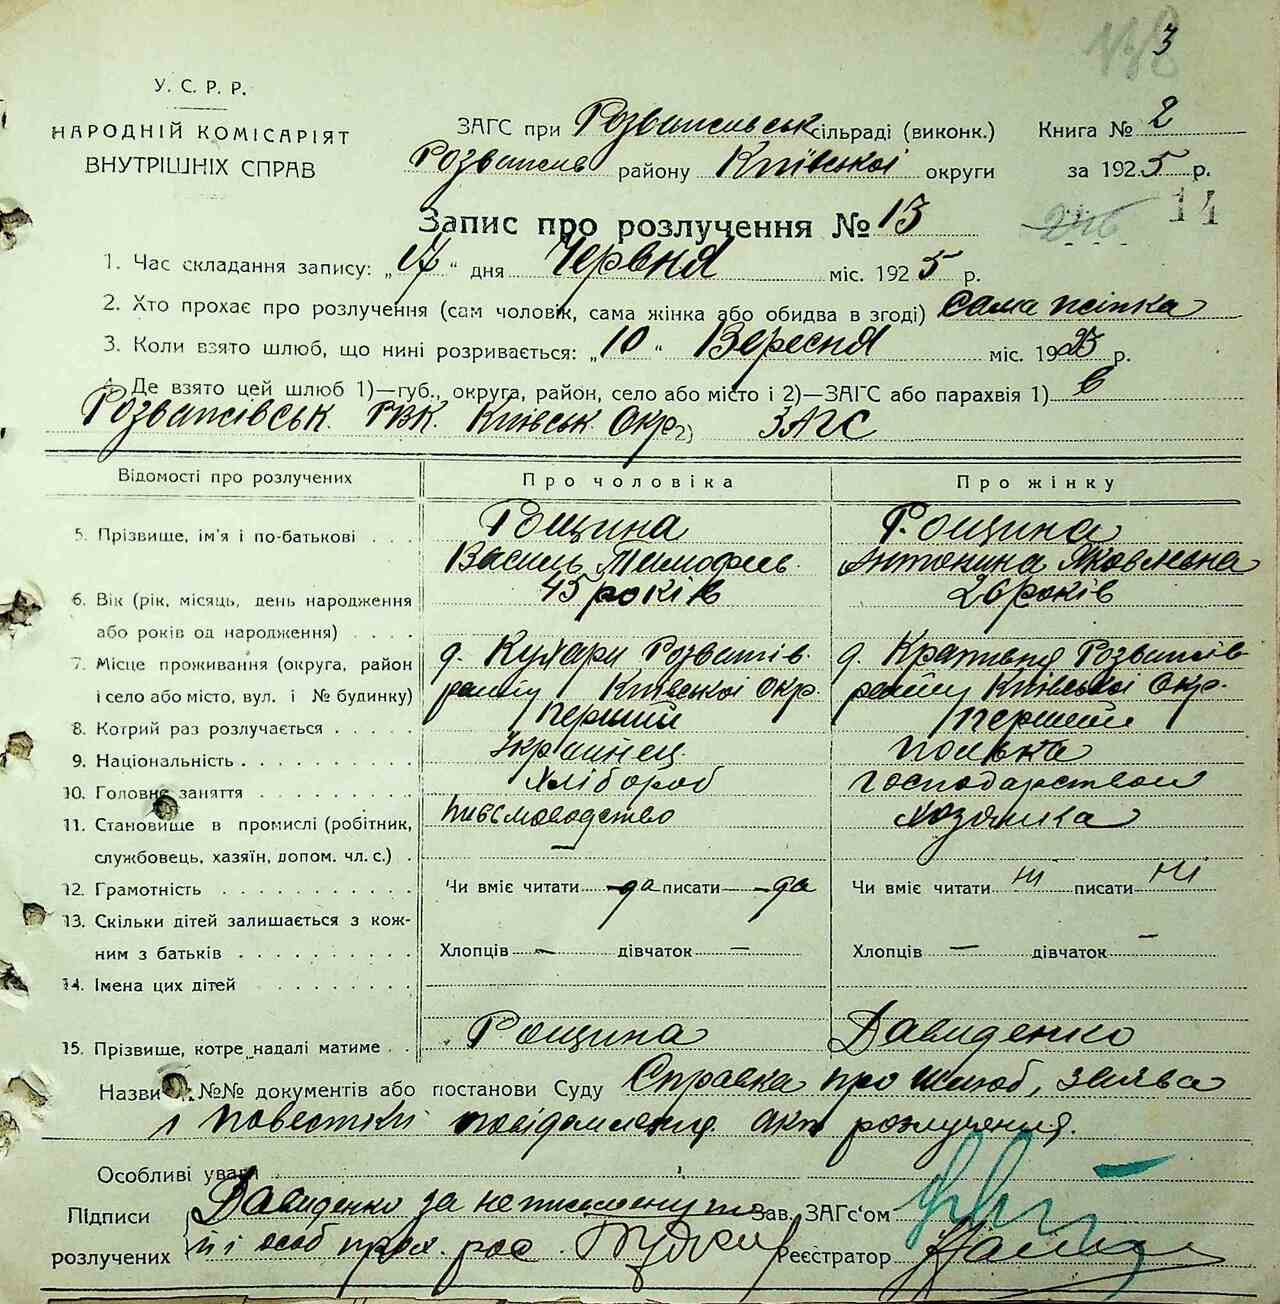 3
У. С. Р. Р.
НАРОДНІЙ КОМІСАРІЯТ
ВНУТРІШНІХ СПРАВ
ЗАГС при Розважівськ сільраді (виконк.) Книга № 2
Розважів району Київської округи за 1925 р.
14
Запис про розлучення № 13
1. Час складання запису: „17“ дня Червня міс. 1925 р.
2. Хто прохає про розлучення (сам чоловік, сама жінка або обидва в згоді) Сама жінка
3. Коли взято шлюб, що нині розривається: „10“ Вересня міс. 1923 р.
4. Де взято цей шлюб 1)—губ., округа, район, село або місто і 2)—ЗАГС або парахвія 1) в
Розважівськ. РВК. Київськ Окр 2) ЗАГС
Відомості про розлучених Про чоловіка Про жінку
5. Прізвище, ім'я і по-батькові Рощина Рощина
Василь Тимофеев. Антонина Яковлевна
6. Вік (рік, місяць, день народження 45 років 26 років
або років од народження)
7. Місце проживання (округа, район д. Кухари Розважів. д. Розважів
і село або місто, вул. і № будинку) району Київської Окр. району Київської Окр.
8. Котрий раз розлучається перший перший
9. Національність Українец полька
10. Головне заняття Хлібороб господарством
11. Становище в промислі (робітник, хозяйка
службовець, хазяїн, допом. чл. с.)
12. Грамотність Чи вміє читати да писати да Чи вміє читати ні писати ні
13. Скільки дітей залишається з кож-
ним з батьків Хлопців — дівчаток — Хлопців — дівчаток —
14. Імена цих дітей
15. Прізвище, котре надалі матиме Рощина Давиденко
Назви №№ документів або постанови Суду Справка про шлюб, заява
і повестки повідомлення акт розлучення.
Особливі уваги
Підписи Давиденко за неписьменну Зав. ЗАГс'ом
розлучених її і особ прох. рос. Реєстратор